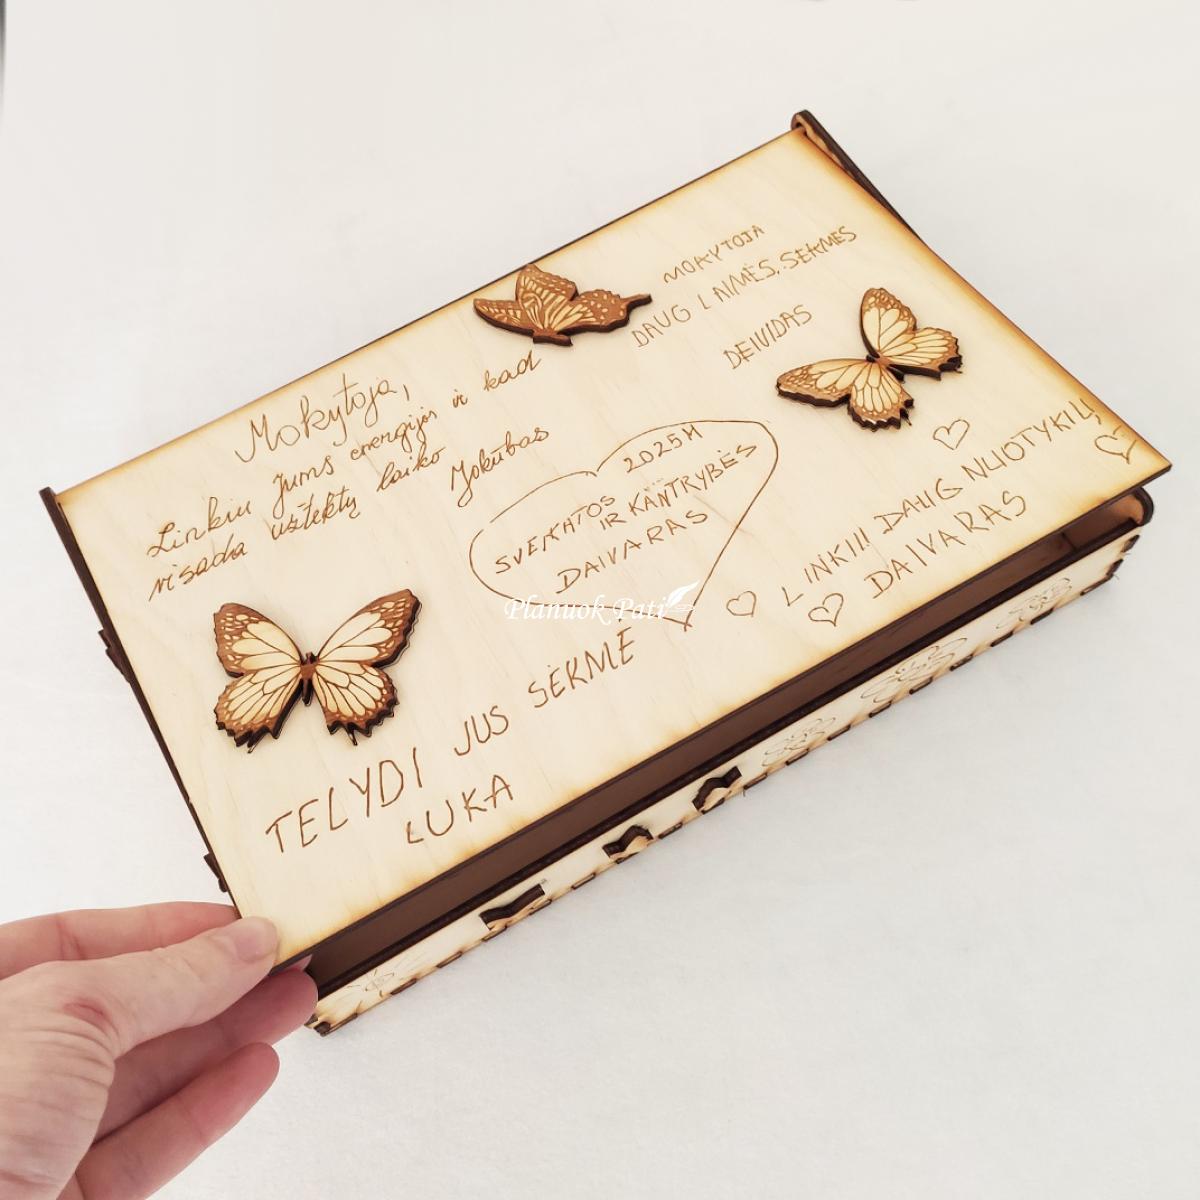 Mokytoja,
Linkiu jums energijos ir kad
visada užtektų laiko Jokūbas
MOKYTOJA
DAUG LAIMĖS, SĖKMĖS
DEIVIDAS
2025M
SVEIKATOS
IR KANTRYBĖS
DAIVARAS
LINKIU DAUG NUOTYKIŲ!
DAIVARAS
TELYDI JUS SĖKMĖ
LUKA
Planuok Pati